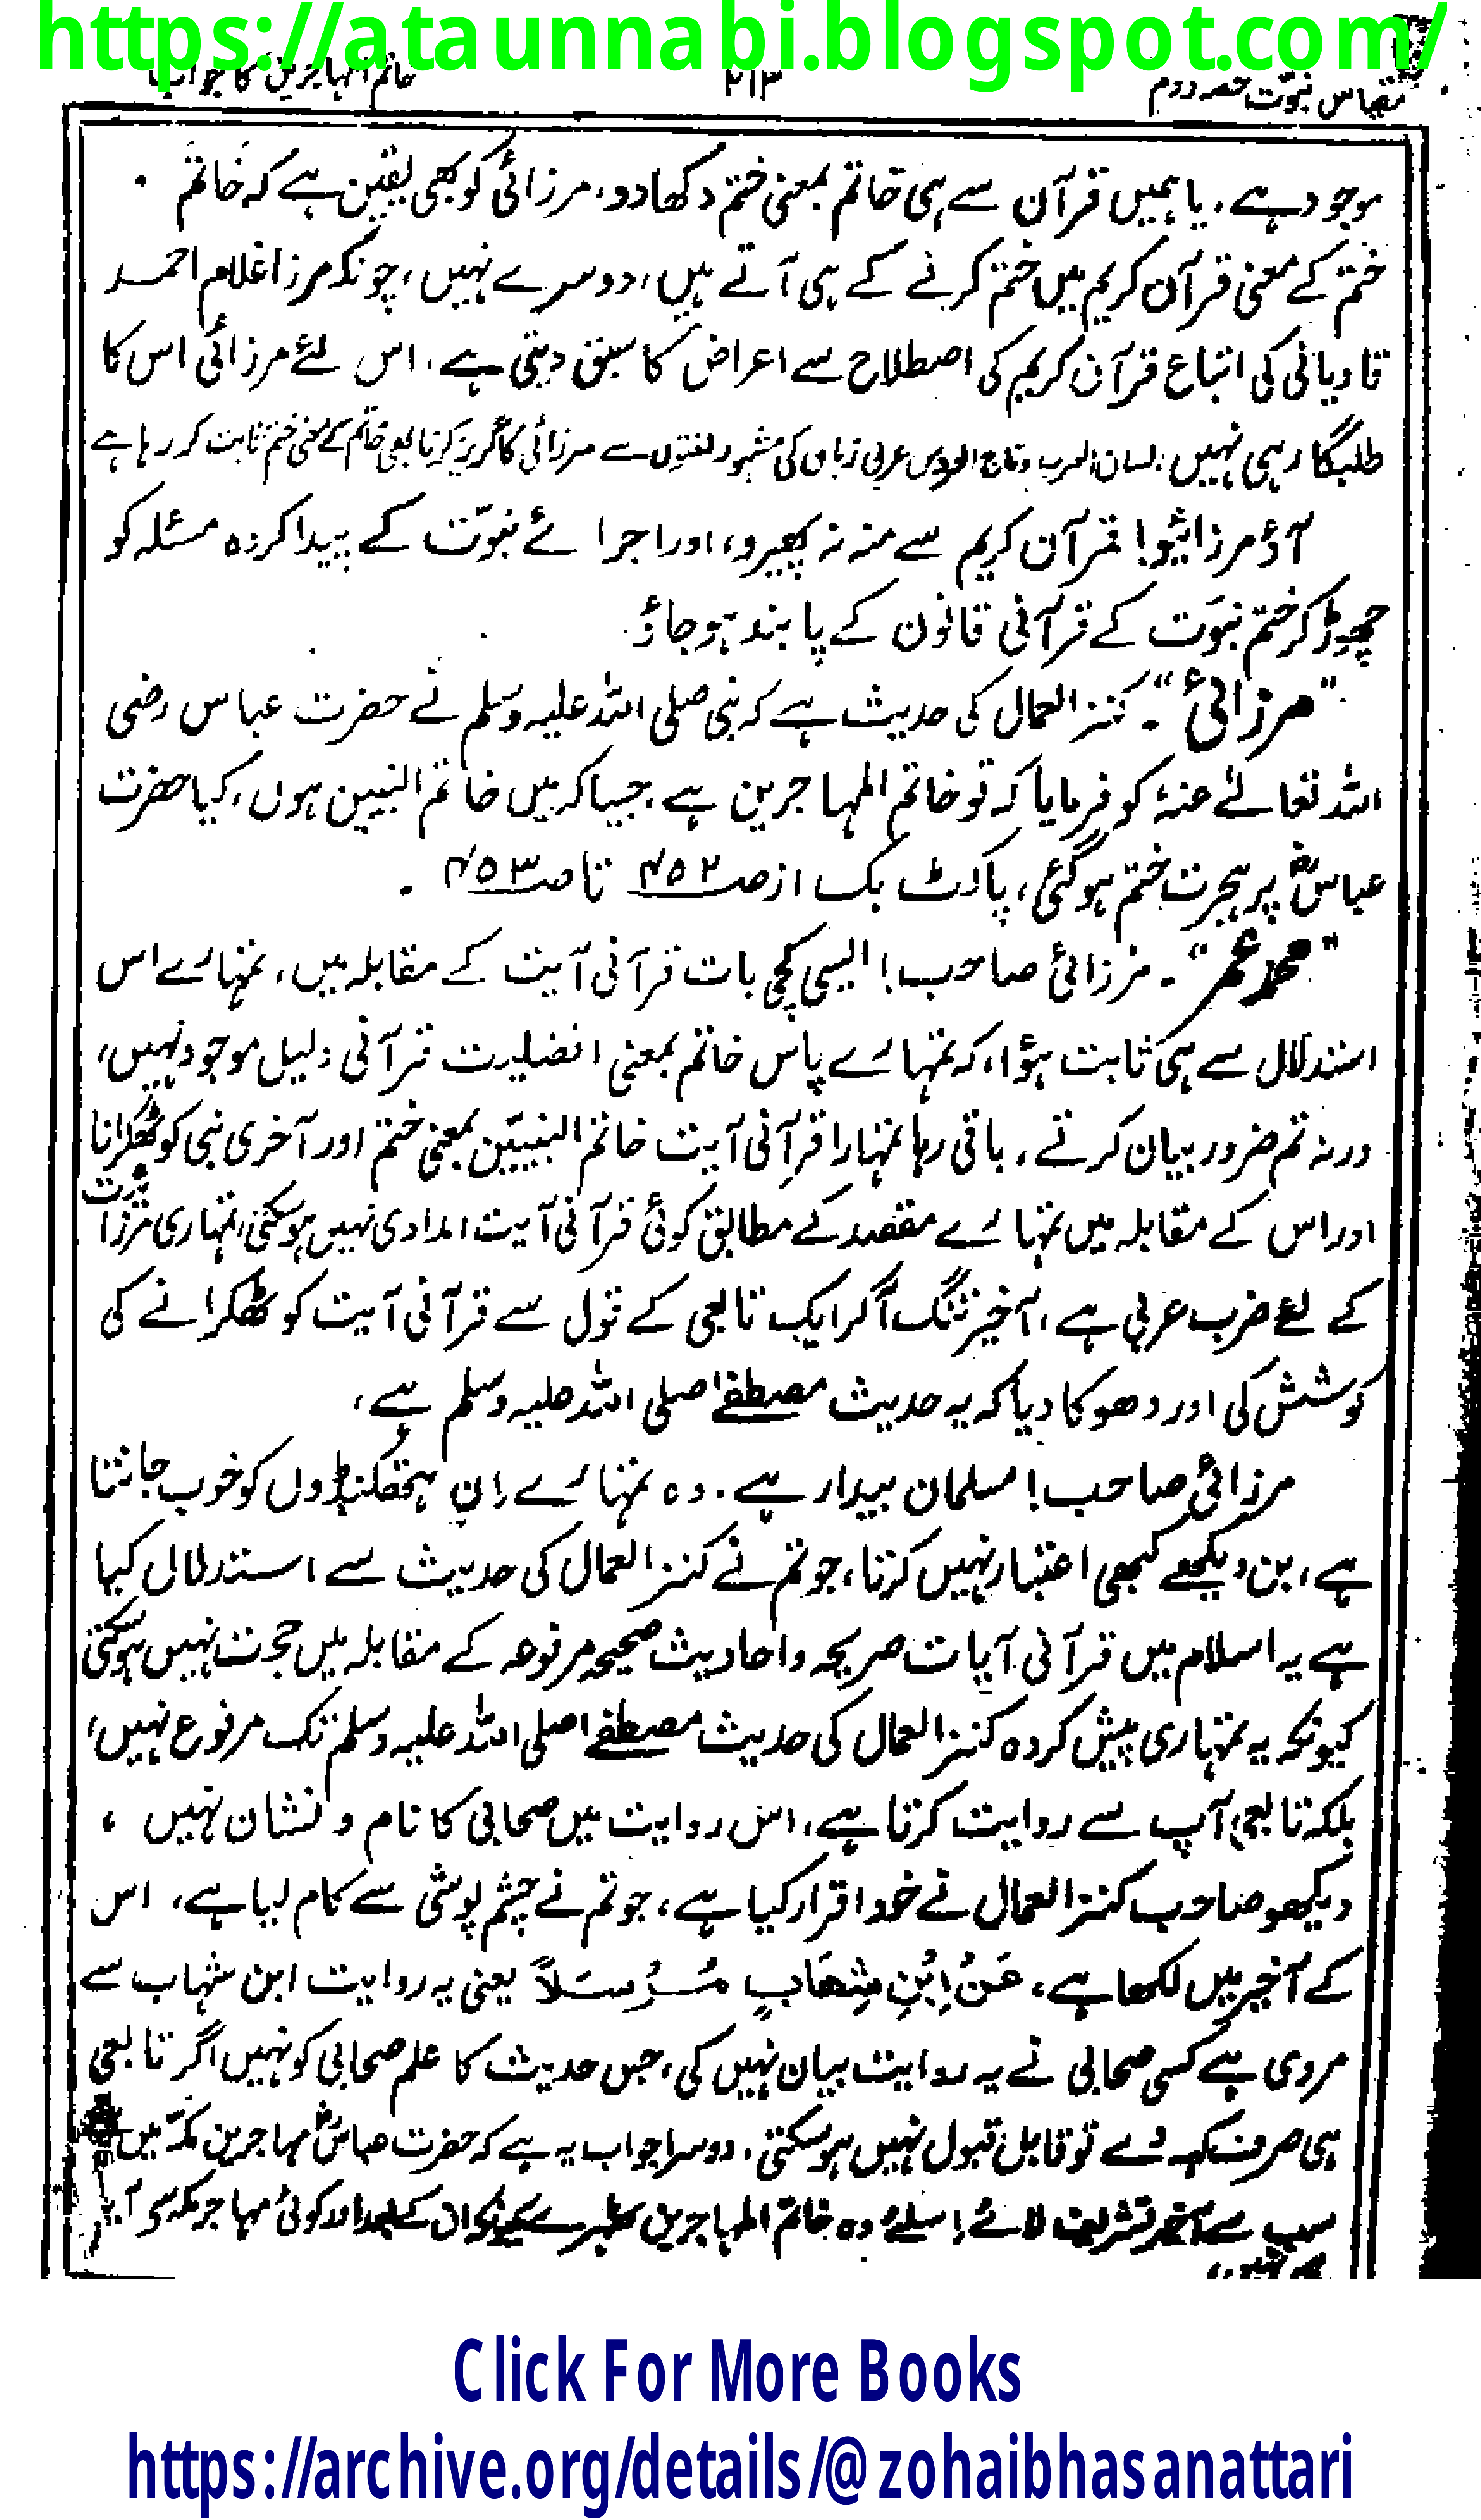 https://ataunnabi.blogspot.com/
مقیاس نبوّت حصہ دوم ۲۱۳ خاتم المہاجرین کا جواب
موجود ہے، یا ہمیں قرآن سے ہی خاتم بمعنی ختم دکھا دو، مرزائی کو بھی یقین ہے کہ خاتم
ختم کے معنی قرآن کریم میں ختم کرنے کے ہی آتے ہیں، دوسرے نہیں، چونکہ مرزا غلام احمد
قادیانی کی اتباع قرآن کریم کی اصطلاح سے اعراض کا سبق دیتی ہے، اس لئے مرزائی اس کا
طلبگار ہی نہیں، لسان العرب و تاج العروس عربی زبان کی مشہور لغتوں سے مرزائی کا گریز کرنا بھی خاتم کے معنی ختم ثابت کر رہا ہے
آؤ مرزائیو! قرآن کریم سے منہ نہ پھیرو، اور اجرائے نبوّت کے پیدا کردہ مسئلہ کو
چھوڑ کر ختم نبوّت کے قرآنی قانون کے پابند ہو جاؤ۔
"مرزائی"۔ کنز العمال کی حدیث ہے کہ نبی صلی اللہ علیہ وسلم نے حضرت عباس رضی
اللہ تعالےٰ عنہٗ کو فرمایا کہ تو خاتم المہاجرین ہے، جیسا کہ میں خاتم النبیین ہوں، کیا حضرت
عباسؓ پر ہجرت ختم ہو گئی، پاکٹ بک از صـ ۴۵۲ تا صـ ۴۵۳ ۔
"محمد عمر"۔ مرزائی صاحب! ایسی کچی بات قرآنی آیت کے مقابلہ میں، تمہارے اس
استدلال سے ہی ثابت ہؤا، کہ تمہارے پاس خاتم بمعنی افضلیت قرآنی دلیل موجود نہیں،
ورنہ تم ضرور بیان کرتے، باقی رہا تمہارا قرآنی آیت خاتم النبییّن بمعنی ختم اور آخری نبی کو ٹھکرانا
اور اس کے مقابلہ میں تمہارے مقصد کے مطابق کوئی قرآنی آیت امدادی نہیں ہو سکتی، تمہاری مرزائیت
کے لئے ضرب عربی ہے، آخیر تنگ آکر ایک تابعی کے قول سے قرآنی آیت کو ٹھکرانے کی
کوشش کی اور دھوکا دیا کہ یہ حدیث مصطفےٰ صلی اللہ علیہ وسلم ہے،
مرزائی صاحب! مسلمان بیدار ہے۔ وہ تمہارے اِن ہتھکنڈوں کو خوب جانتا
ہے، بن دیکھے کبھی اعتبار نہیں کرتا، جو تم نے کنز العمال کی حدیث سے استدلال کیا
ہے یہ اسلام میں قرآنی آیات صریحہ و احادیث صحیحہ مرفوعہ کے مقابلہ میں حجت نہیں ہو سکتی
کیونکہ یہ تمہاری پیش کردہ کنز العمال کی حدیث مصطفےٰ صلی اللہ علیہ وسلم تک مرفوع نہیں،
بلکہ تابعی آپ سے روایت کرتا ہے، اس روایت میں صحابی کا نام و نشان نہیں ،
دیکھو صاحب کنز العمال نے خود اقرار کیا ہے، جو تم نے چشم پوشی سے کام لیا ہے، اس
کے آخیر میں لکھا ہے، عَنْ اِبْنِ شِھَابٍ مُرْسَلاً یعنی یہ روایت ابن شہاب سے
مروی ہے کسی صحابی نے یہ روایت بیان نہیں کی، جس حدیث کا علم صحابی کو نہیں اگر تابعی
ہی صرف کہہ دے تو قابل قبول نہیں ہو سکتی۔ دوسرا جواب یہ ہے کہ حضرت عباسؓ مہاجرین مکّہ میں
سب سے آخر تشریف لائے اسلئے وہ خاتم المہاجرین ٹھہرے کیونکہ ان کے بعد اور کوئی مہاجر مکہ سے آیا
ہی نہیں،
Click For More Books
https://archive.org/details/@zohaibhasanattari